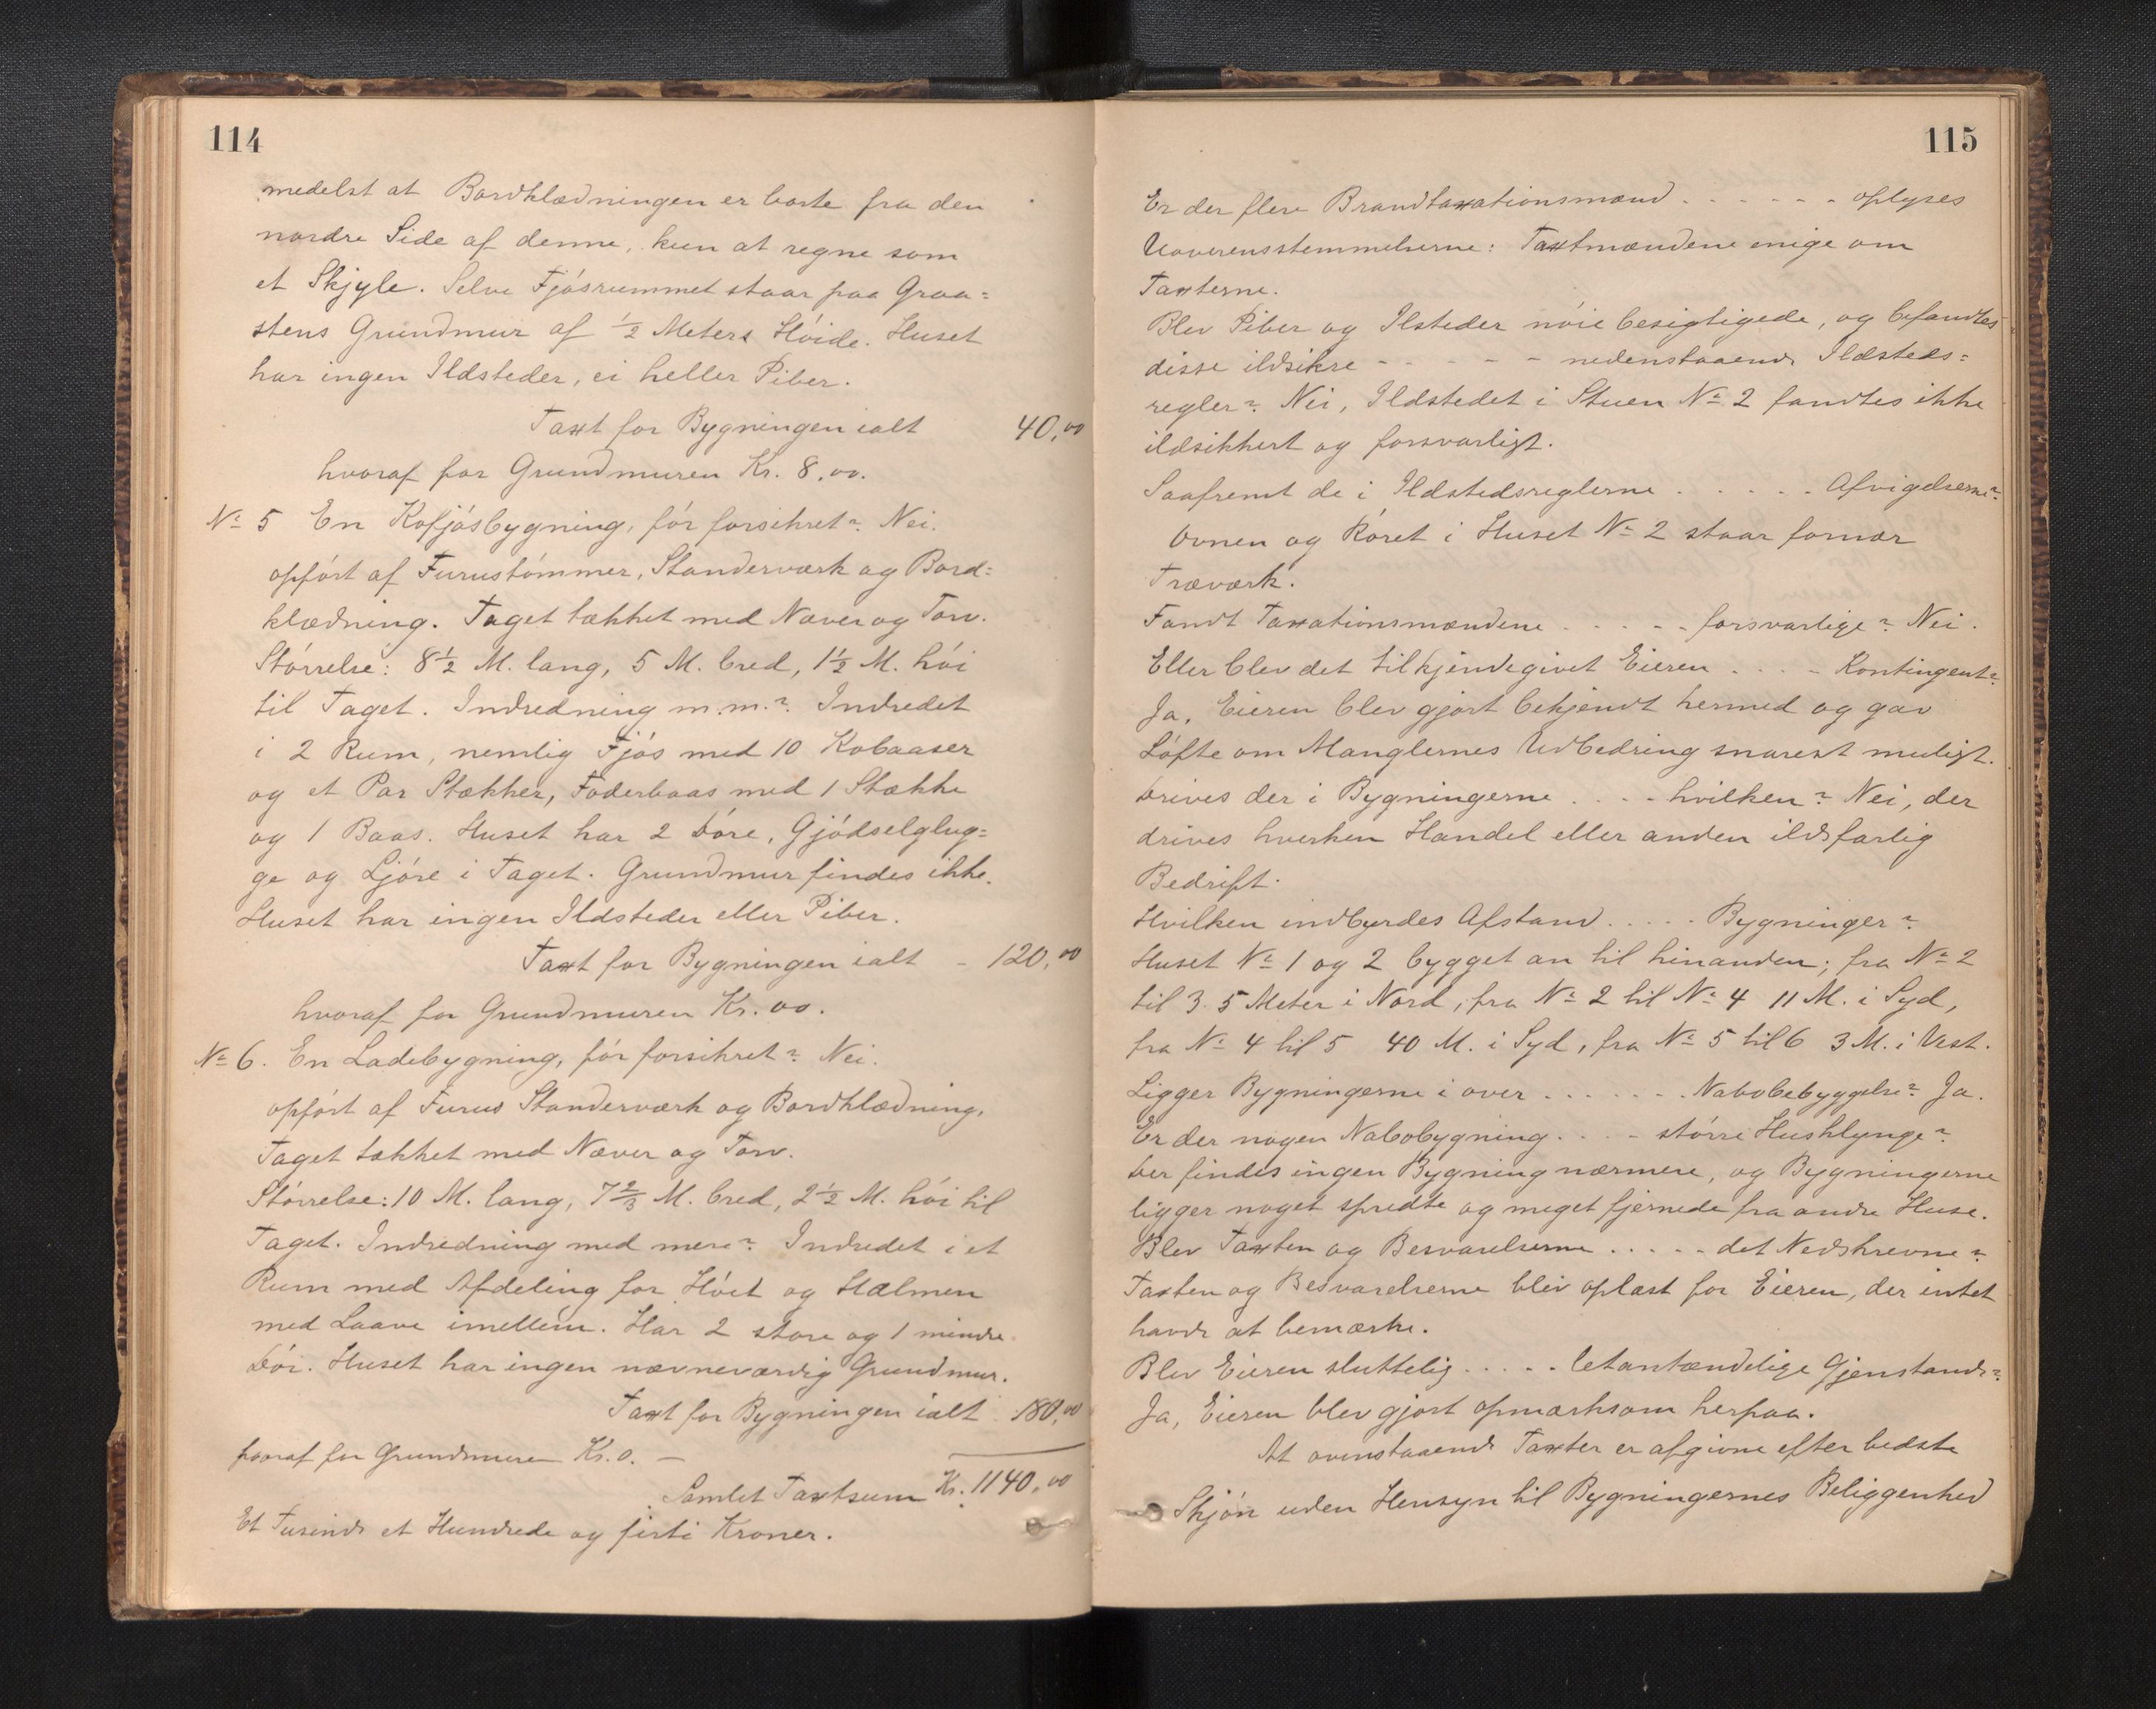 114
medelst at Bordklædningen er borte fra den
nordre Side af denne, kun at regne som
et Skjyle. Selve Fjósrummet staar paa Graa=
stens Grundmur af ½ Meters Hóide. Huset
har ingen Ildsteder, ei heller Piber.
Taxt for Bygningen ialt 40,00
hvoraf for Grundmuren Kr. 8,00.
No 5 En Kofjósbygning, fór forsikret? Nei.
opfórt af Furustómmer, Standerværk og Bord=
klædning. Taget tækket med Næver og Torv.
Stórrelse: 8½ M. lang, 5 M. bred, 1½ M. hói
til Taget. Indredning m.m.? Indredet
i 2 Rum, nemlig Fjós med 10 Kobaaser
og et Par Stækker, Foderbaas med 1 Stække
og 1 Baas. Huset har 2 Dóre, Gjódselglug=
ge og Ljóre i Taget. Grundmur findes ikke.
Huset har ingen Ildsteder eller Piber.
Taxt for Bygningen ialt - 120,00
hvoraf for Grundmuren Kr. 00.
No 6. En Ladebygning, fór forsikret? Nei.
opfórt af Furus Standerværk og Bordklædning,
Taget tækket med Næver og Torv.
Stórrelse: 10 M. lang, 7⅔ M. bred, 2½ M. hói til
Taget. Indredning med mere? Indredet i et
Rum med Afdeling for Hóet og Halmen
med Laave imellem. Har 2 store og 1 mindre
Dór. Huset har ingen nævneværdig Grundmur.
Taxt for Bygningen ialt - 180,00
hvoraf for Grundmuren Kr. 0. —
Samlet Taxtsum Kr. 1140,00
Et Tusinde et Hundrede og firti Kroner.
115
Er der flere Brandtaxationsmænd . . . . . . oplyses
Uoverensstemmelserne: Taxtmændene enige om
Taxterne.
Blev Piber og Ilsteder nóie besigtigede, og befandtes
disse ildsikre - - - - - nedenstaaende Ildsteds=
regler? Nei, Ildstedet i Stuen No 2 fandtes ikke
ildsikkert og forsvarligt.
Saafremt de i Ildstedsreglerne . . . . . Afvigelserne?
Ovnen og Róret i Huset No 2 staar fornær
Træværk.
Fandt Taxationsmændene . . . . . forsvarlige? Nei.
Eller blev det tilkjendegivet Eieren . . . . Kontingent?
Ja, Eieren blev gjort bekjendt hermed og gav
Lófte om Manglernes Udbedring snarest muligt.
Drives der i Bygningerne . . . . hvilken? Nei, der
drives hverken Handel eller anden ildsfarlig
Bedrift.
Hvilken indbyrdes Afstand . . . . . Bygninger?
Huset No 1 og 2 bygget an til hinanden; fra No 2
til 3 5 Meter i Nord, fra No 2 til No 4 11 M. i Syd,
fra No 4 til 5 40 M. i Syd, fra No 5 til 6 3 M. i Vest.
Ligger Bygningerne i over . . . . . . . Nabobebyggelse? Ja.
Er der nogen Nabobygning . . . . stórre Husklynge?
Der findes ingen Bygning nærmere, og Bygningerne
ligger noget spredte og meget fjernede fra andre Huse.
Blev Taxten og Besvarelserne . . . . . det Nedskrevne?
Taxten og Besvarelserne blev oplæst for Eieren, der intet
havde at bemærke.
Blev Eieren sluttelig . . . . . letantændelige Gjenstande?
Ja, Eieren blev gjort opmærksom herpaa.
At ovenstaaende Taxter er afgivne efter bedste
Skjón uden Hensyn til Bygningernes Beliggenhed